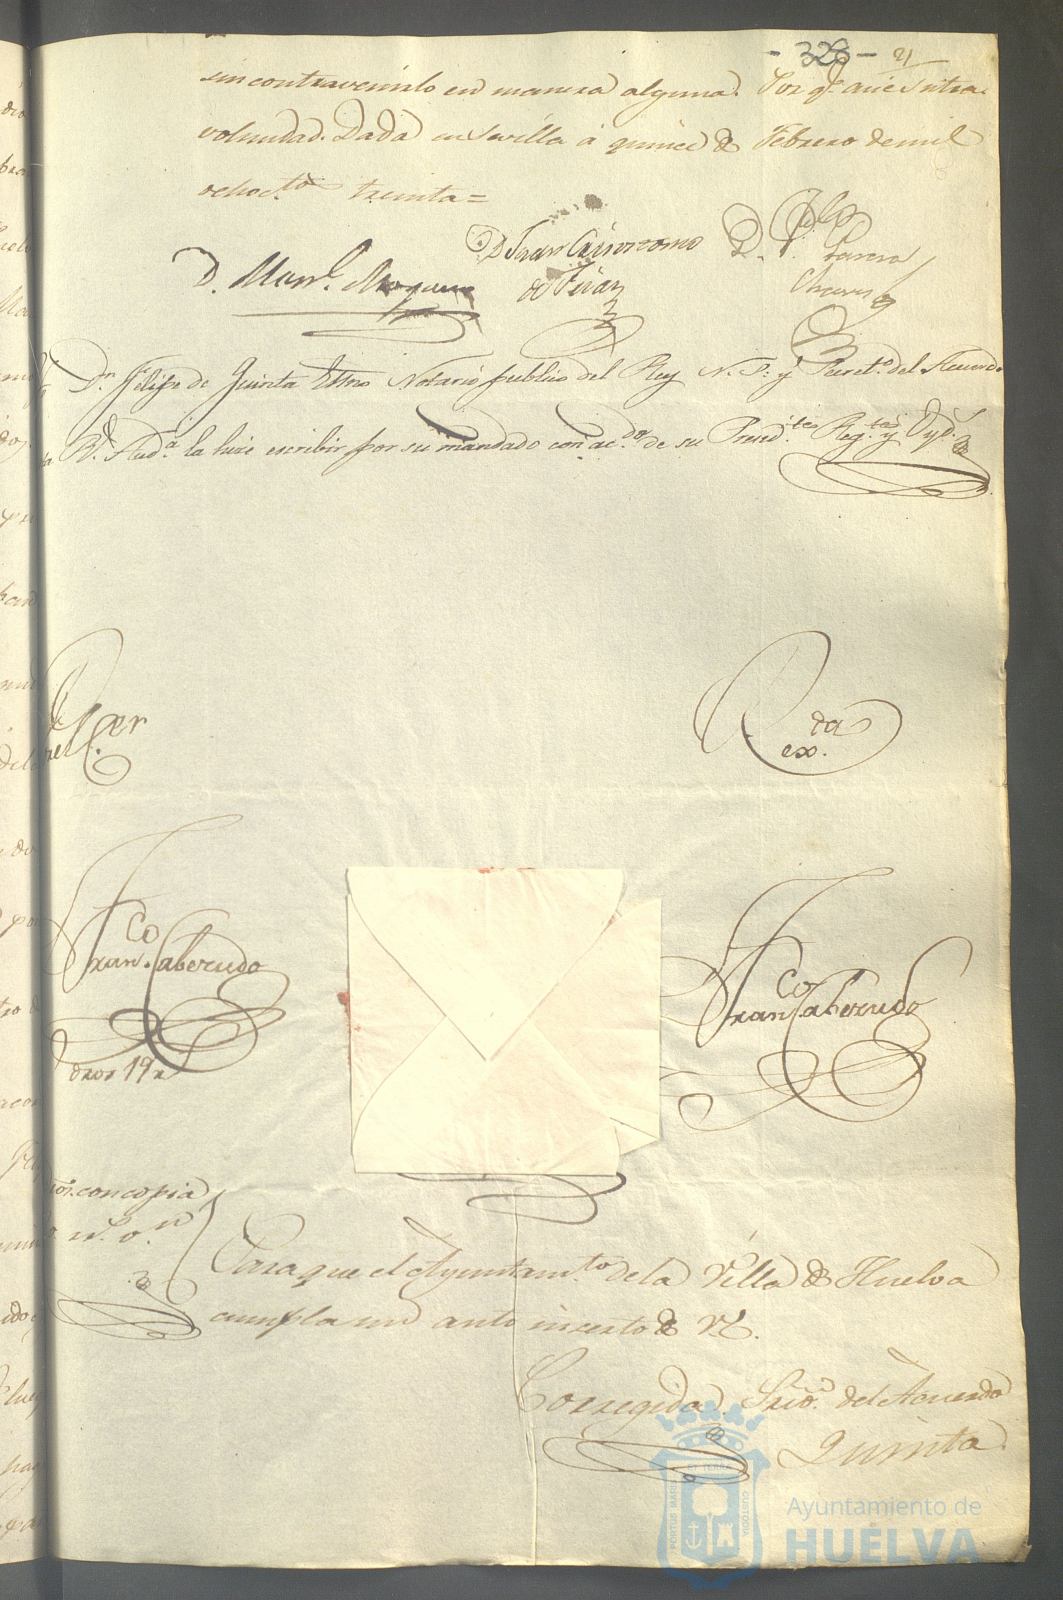 - 328 - 21
sin contravenirlo en manera alguna. Por qe. asi es ntra.
voluntad. Dada en Sevilla á quince de Febrero de mil
ochocto. treinta =
D. Manl. D. Juan Crisostomo D.
de Teran
Dn. Felipe de Quinta Esno Notario publico del Rey N. S. y Secreto. del Acuerdo
Rl. Auda. la hice escribir por su mandado con aco. de su Presidte. Regte. y Oyd.
Rda
ex.
Franco. Caberudo
Franco. Caberudo
dros 19
con copia
Para que el Ayuntamto. de la Villa de Huelva
cumpla un auto inserto de VE.
Corregida. Srio. del Acuerdo
Quinta
PORTUS MARIS ET TERRAE CUSTODIA
Ayuntamiento de
HUELVA